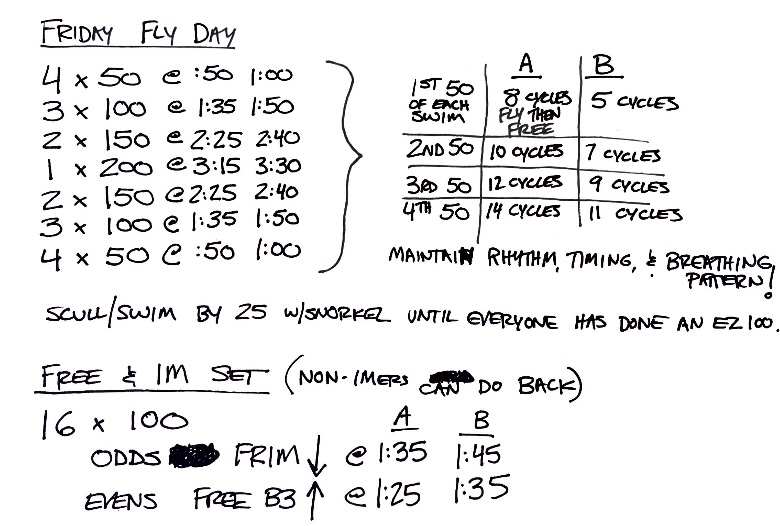 FRIDAY FLY DAY
4 x 50 @ :50 1:00
3 x 100 @ 1:35 1:50
2 x 150 @ 2:25 2:40
1 x 200 @ 3:15 3:30
2 x 150 @ 2:25 2:40
3 x 100 @ 1:35 1:50
4 x 50 @ :50 1:00
A B
1ST 50 OF EACH SWIM 8 CYCLES FLY THEN FREE 5 CYCLES
2ND 50 10 CYCLES 7 CYCLES
3RD 50 12 CYCLES 9 CYCLES
4TH 50 14 CYCLES 11 CYCLES
MAINTAIN RHYTHM, TIMING, & BREATHING
PATTERN!
SCULL/SWIM BY 25 W/SNORKEL UNTIL EVERYONE HAS DONE AN EZ 100.
FREE & IM SET (NON-IMERS CAN DO BACK)
16 x 100
A B
ODDS FRIM ↓ @ 1:35 1:45
EVENS FREE B3 ↑ @ 1:25 1:35